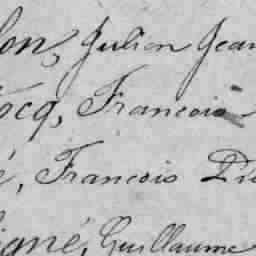 lon, Julien Jean
ocq, Francois
é, Francois Pi
igné, Guillaume